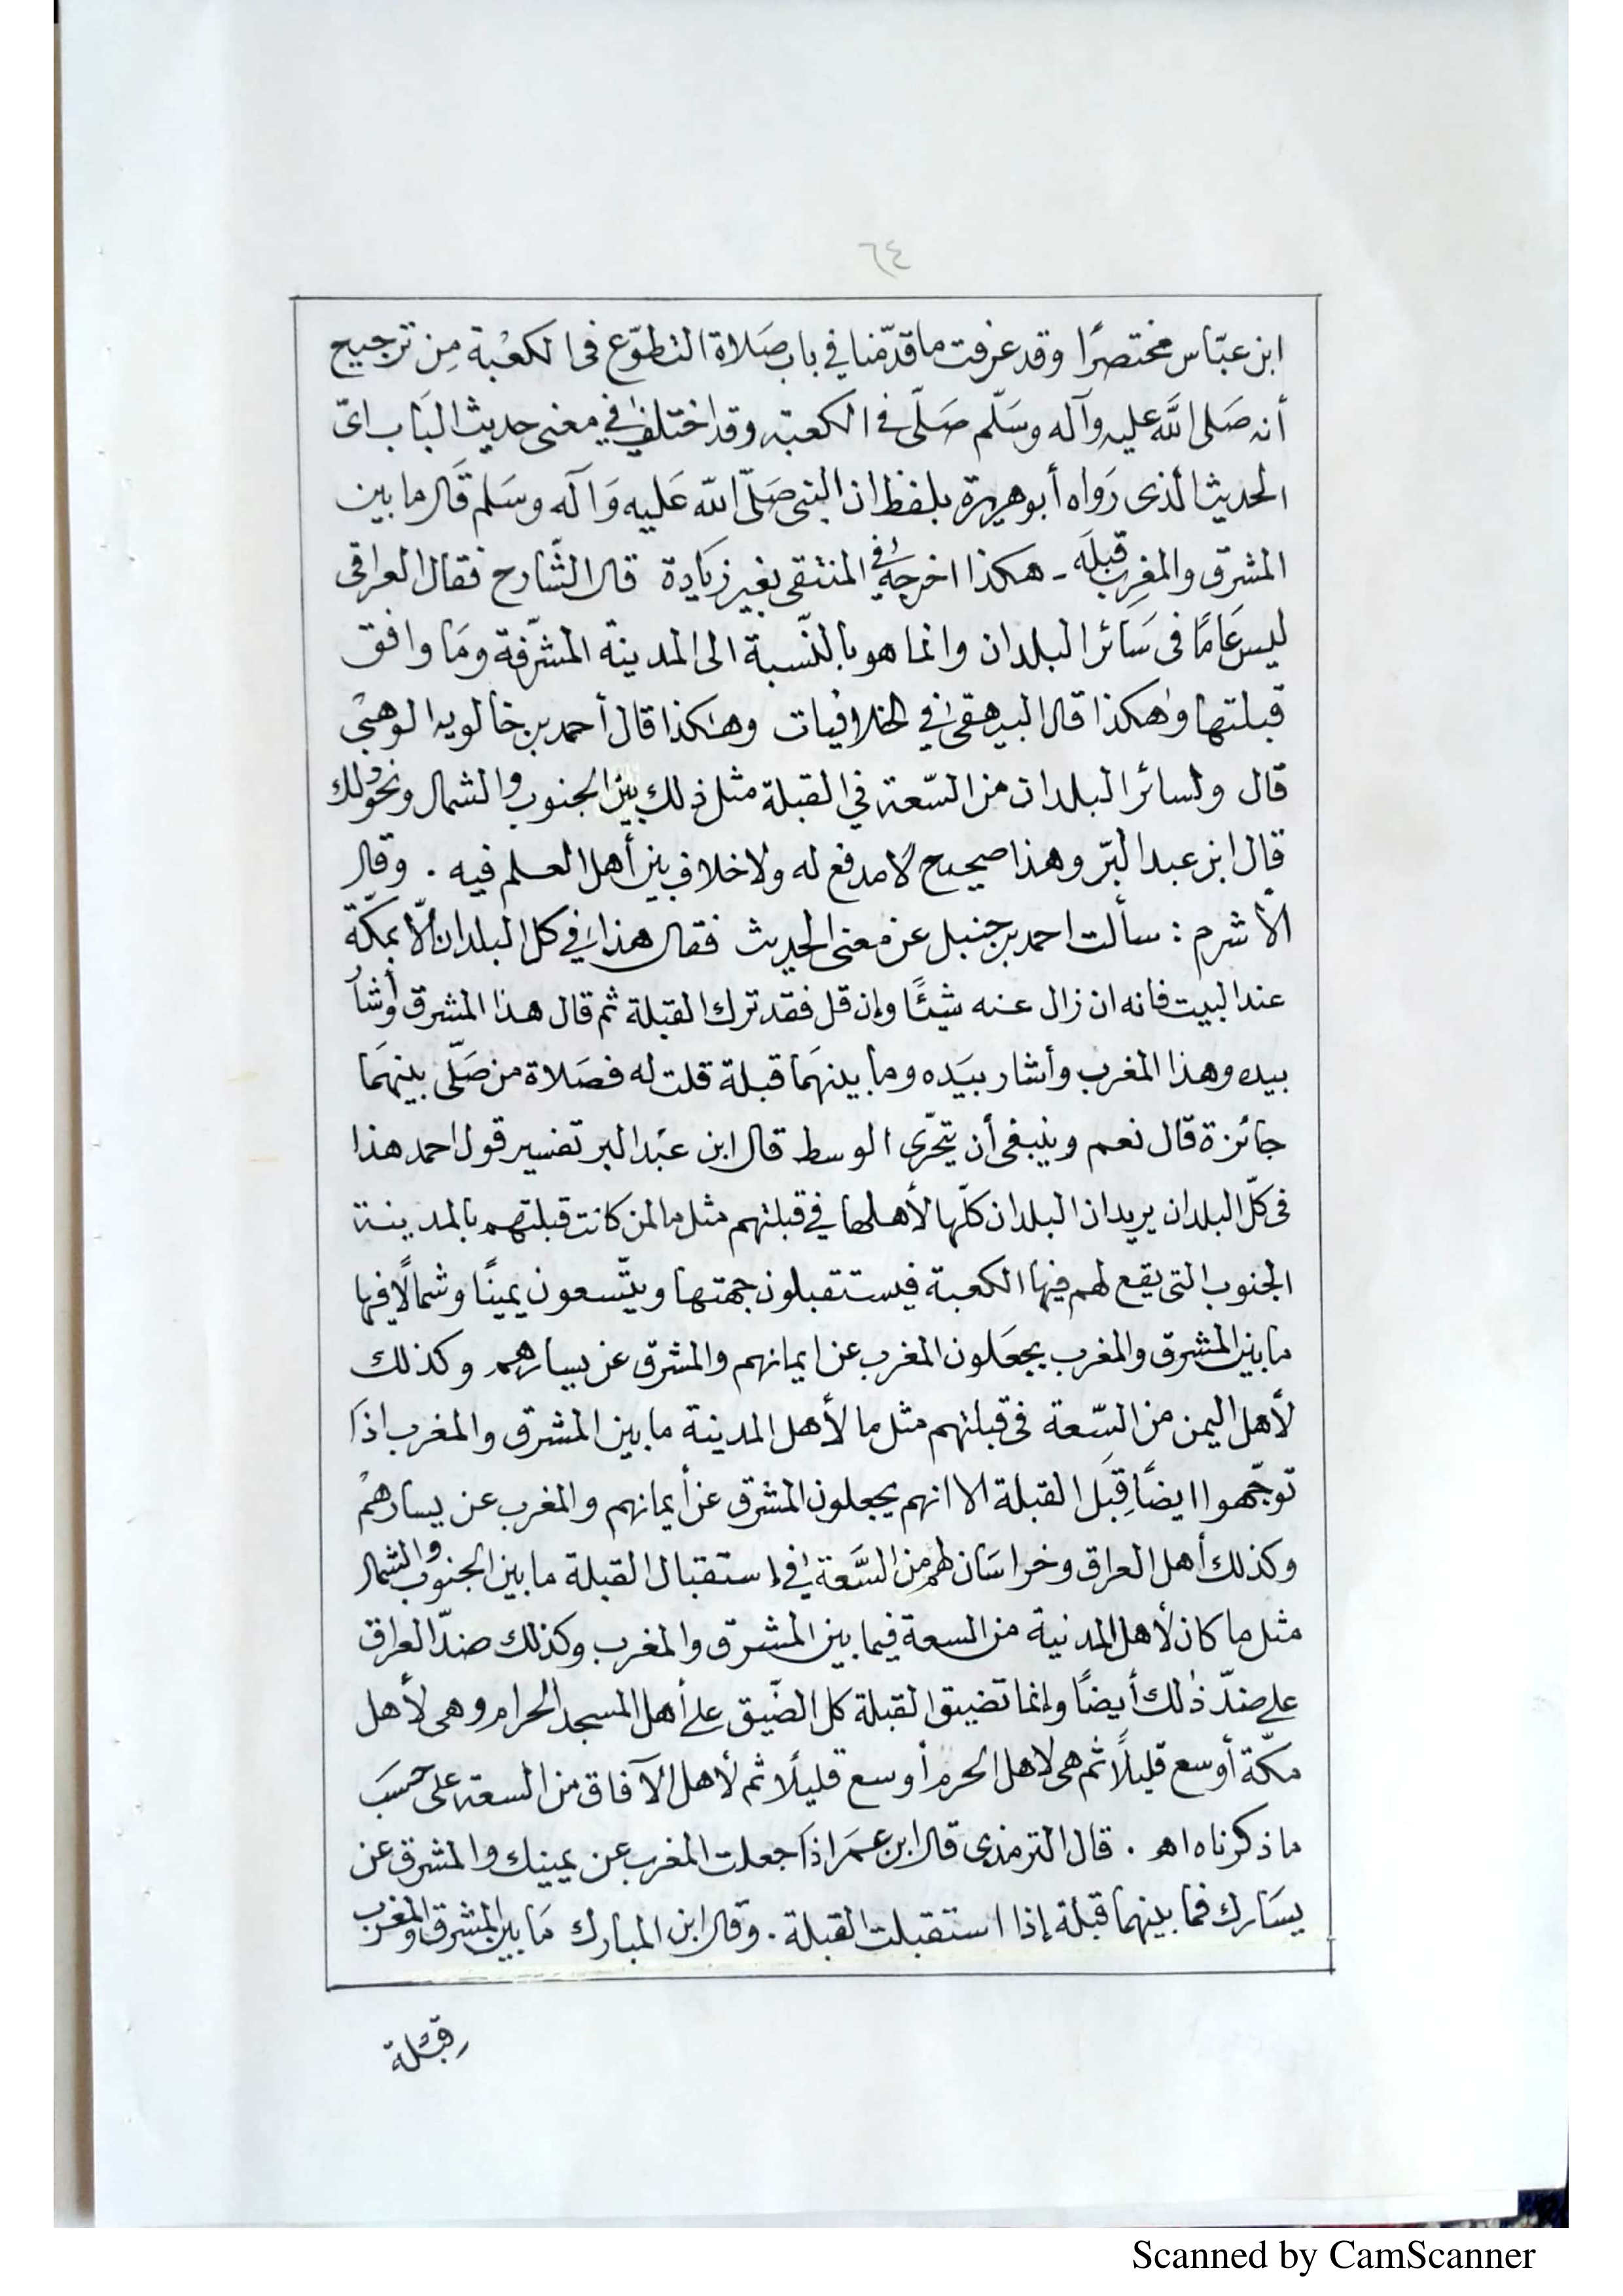 ٦٤
ابن عبّاس مختصرًا وقد عرفت ما قدّمنا في باب صَلاة التطوّع فى الكعْبة مِن ترجيح
أنه صَلى اللَّه عليه وآله وسَلّم صَلّى فى الكعبة وقد اختلف في معنى حديث البَاب اىّ
الحديث الذى رَواه أبو هريرة بلفظ ان النبى صَلّى اللّه عَليه وَآله وسَلم قَال ما بين
المشرّق والمغرِب قبلَه - هكذا اخرجهُ في المنتقى بغير زيَادة قال الشّارح فقال العراقى
ليس عَامًا فى سَائر البلدان وانما هو بالنّسبة الى المدينة المشرّفة ومَا وافق
قبلتها وهكذا قال البيهقى في الخلافيات وهٰكذا قال أحمد بن خالويه الوهبْى
قال ولسائر البلدان من السّعة في القبلة مثل ذلك بين الجنوب والشمال ونحو ذلك
قال ابن عبد البَرّ وهذا صحيح لا مدفع له ولا خلاف بين أهل العلم فيه . وقال
الأشرم : سألت احمد بن حنبل عن معنى الحديث فقال هذا في كل البلدان الّا بمكّة
عند البيت فانه ان زال عنه شيئًا وإن قل فقد ترك القبلة ثم قال هذا المشرق وأشارُ
بيده وهذا المغرب وأشار بيَده وما بينهَما قبلة قلت له فصَلاة من صَلّى بينهَما
جائزة قال نعم وينبغى أن يتحّرى الوسط قال ابن عبْد البر تفسير قول احمد هذا
فى كلّ البلدان يريد ان البلدان كلّها لأهلها في قبلتهم مثل ما لمن كانت قبلتهم بالمدينة
الجنوب التى يقع لهم فيها الكعبة فيستقبلون جهتها ويتّسعون يمينًا وشمالًا فيها
ما بين المشرق والمغرب يجعَلون المغرب عن ايمانهم والمشرق عن يسارهم وكذلك
لأهل اليمن من السّعة فى قبلتهم مثل ما لأهل المدينة ما بين المشرق والمغرب اذَا
توجّهوا ايضًا قِبَل القبلة الا انهم يجعلون المشرق عن أيمانهم والمغرب عن يسارهمْ
وكذلك أهل العراق وخراسَان لهم من السَّعة في إستقبال القبلة ما بين الجنوب والشمال
مثل ما كان لأهل المدنية من السعة فيما بين المشرق والمغرب وكذلك ضدّ العراق
على ضدّ ذٰلك أيضًا وإنما تضيق القبلة كل الضّيق على أهل المسجد الحرام وهى لأهل
مكّة أوسع قليلًا ثم هى لاهل الحرم أوسع قليلًا ثم لأهل الآفاق من السعة على حسَب
ما ذكرناه اهـ . قال الترمذى قال ابن عمَر اذَا جعلت المغرب عن يمينك والمشرق عن
يسَارك فما بينهما قبلة إذا استقبلت القبلة . وقال ابن المبارك مَا بين المشرق والمغرب
قبْلة
Scanned by CamScanner